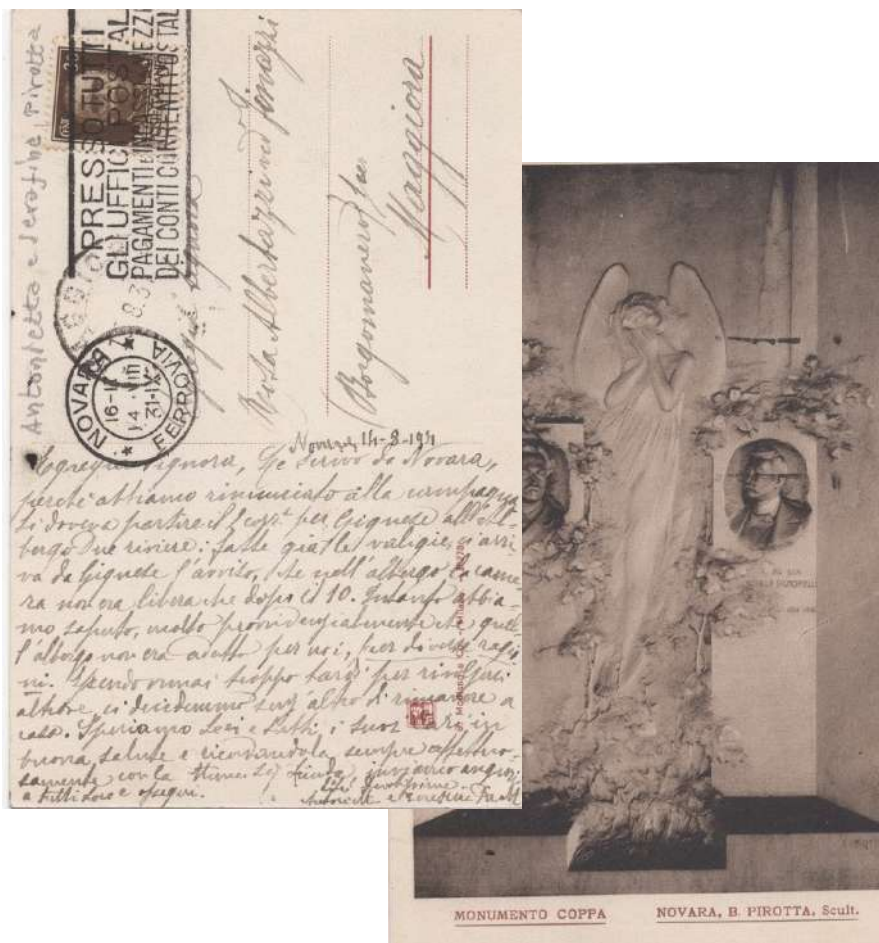 Antonietta e Serafina Pirotta
PRESSO TUTTI
GLI UFFICI POSTAL
PAGAMENTI E INCASSI A MEZZO
DEI CONTI CORRENTI POSTAL
30
NOVARA
16-17
14 VIII
31-IX
FERROVIA
8.3
Egregia Signora
Rosa Albertazzini
Borgomanero per
Maggiora
Novara, 14-8-931
Egregia Signora, Le scrivo da Novara,
perchè abbiamo rinunciato alla campagna
Si doveva partire il corr.t per Gignese all'Al-
bergo Due riviere: fatte già le valigie, ci arri
va da Gignese l'avviso, che nell'albergo la came
ra non era libera che dopo il 10. Intanto abbia-
mo saputo, molto provvidenzialmente che quel
l'albergo non era adatto per noi, per diverse ragio
ni. Essendo ormai troppo tardi per rivolgerci
altrove, ci decidemmo senz'altro di rimanere a
casa. Speriamo Lei e tutti i suoi cari in
buona salute e ricordandola sempre affettuo-
samente con la inviamo auguri
a tutti Loro e ossequi.
MONUMENTO COPPA
NOVARA, B. PIROTTA, Scult.